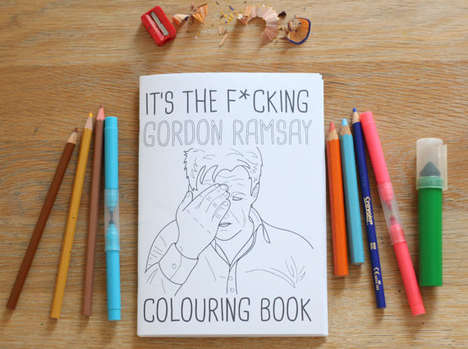 IT'S THE F*CKING
GORDON RAMSAY
COLOURING BOOK